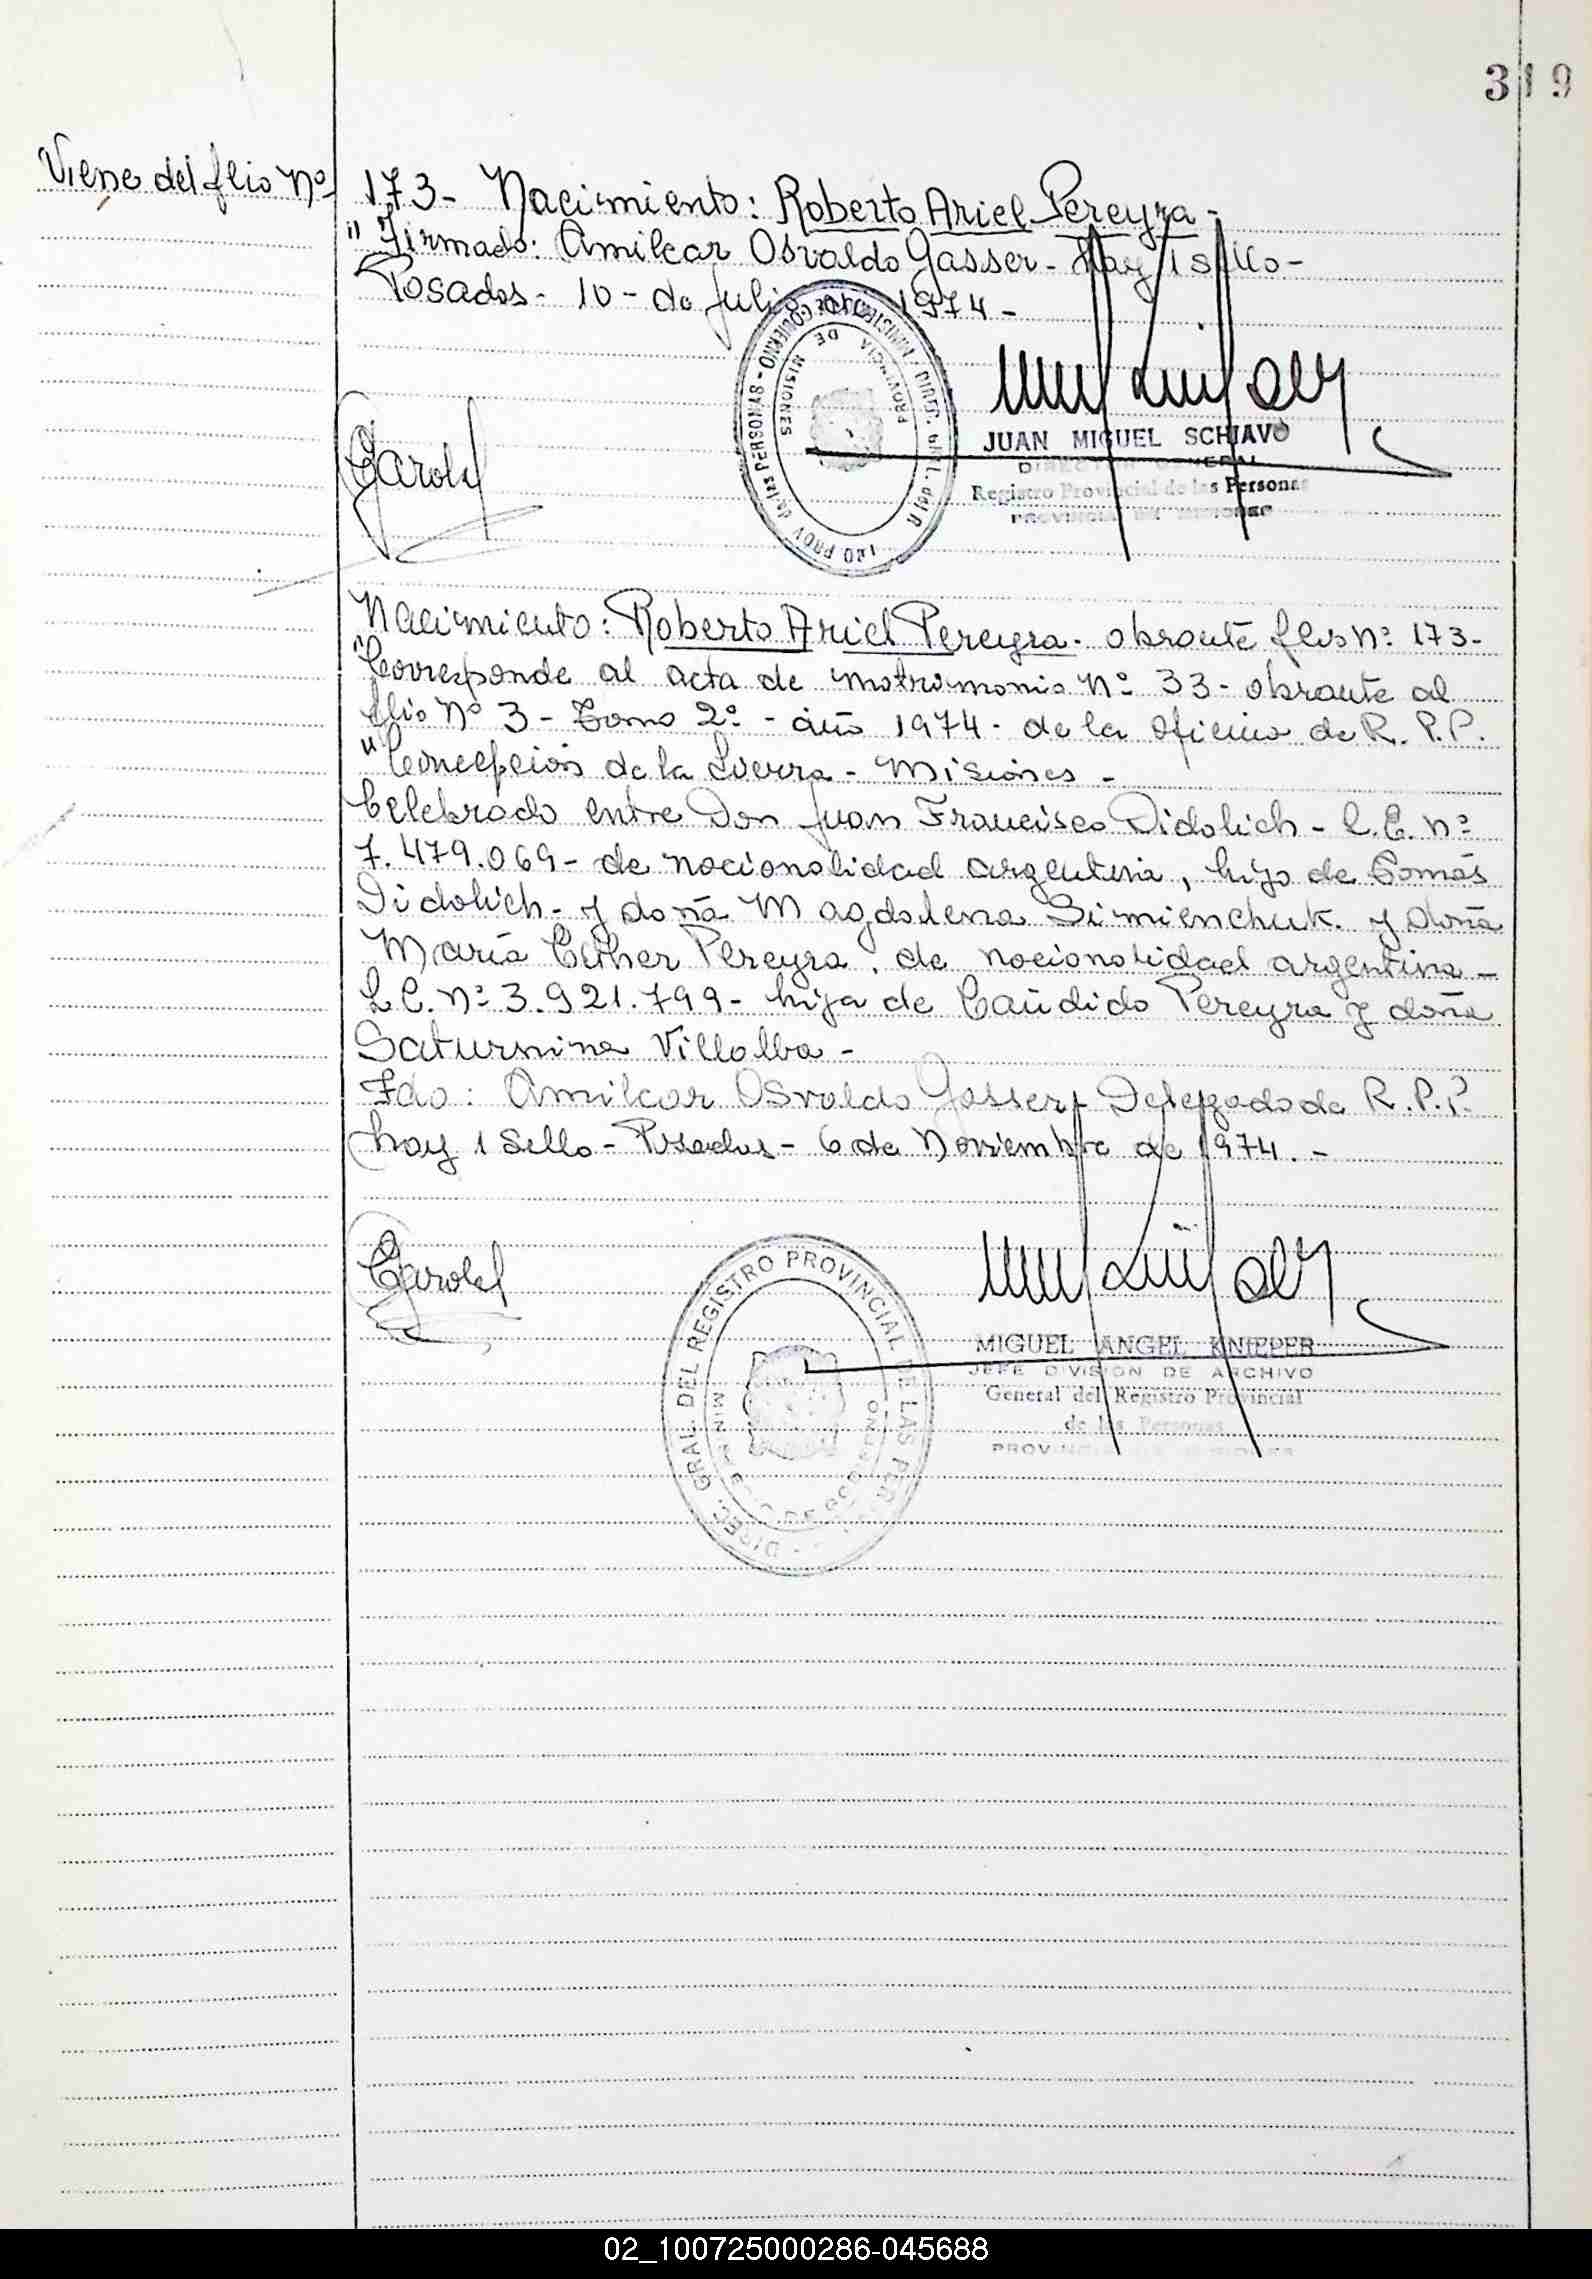 319
Viene del flio Nº 173- Nacimiento: Roberto Ariel Pereyra-
" Firmado: Amilcar Osvaldo Gasser- Hay 1 sello-
Posadas- 10- de Julio de 1974-
JUAN MIGUEL SCHIAVO
DIRECTOR GENERAL
Registro Provincial de las Personas
PROVINCIA DE MISIONES
PROVINCIA DE MISIONES
Nacimiento: Roberto Ariel Pereyra- obrante flio nº 173-
"Corresponde al acta de matrimonio Nº 33- obrante al
flio Nº 3- Tomo 2º- año 1974- de la oficina de R. P. P.
"Concepción de la Sierra- Misiones-
Celebrado entre Don Juan Francisco Didolich- L.E. nº
7.479.069- de nacionalidad argentina, hijo de Tomás
Didolich- y doña Magdalena Simienchuk. y doña
María Esther Pereyra, de nacionalidad argentina-
L.C. Nº 3.921.799- hija de Cándido Pereyra y doña
Saturnina Villalba-
Fdo: Amilcar Osvaldo Gasser- Delegado de R.P.P.
hay 1 sello- Posadas- 6 de Noviembre de 1974.-
DIREC. GRAL. DEL REGISTRO PROVINCIAL DE LAS PERSONAS
MIGUEL ANGEL KNIEPER
JEFE DIVISION DE ARCHIVO
General del Registro Provincial
de las Personas
PROVINCIA DE MISIONES
02_100725000286-045688